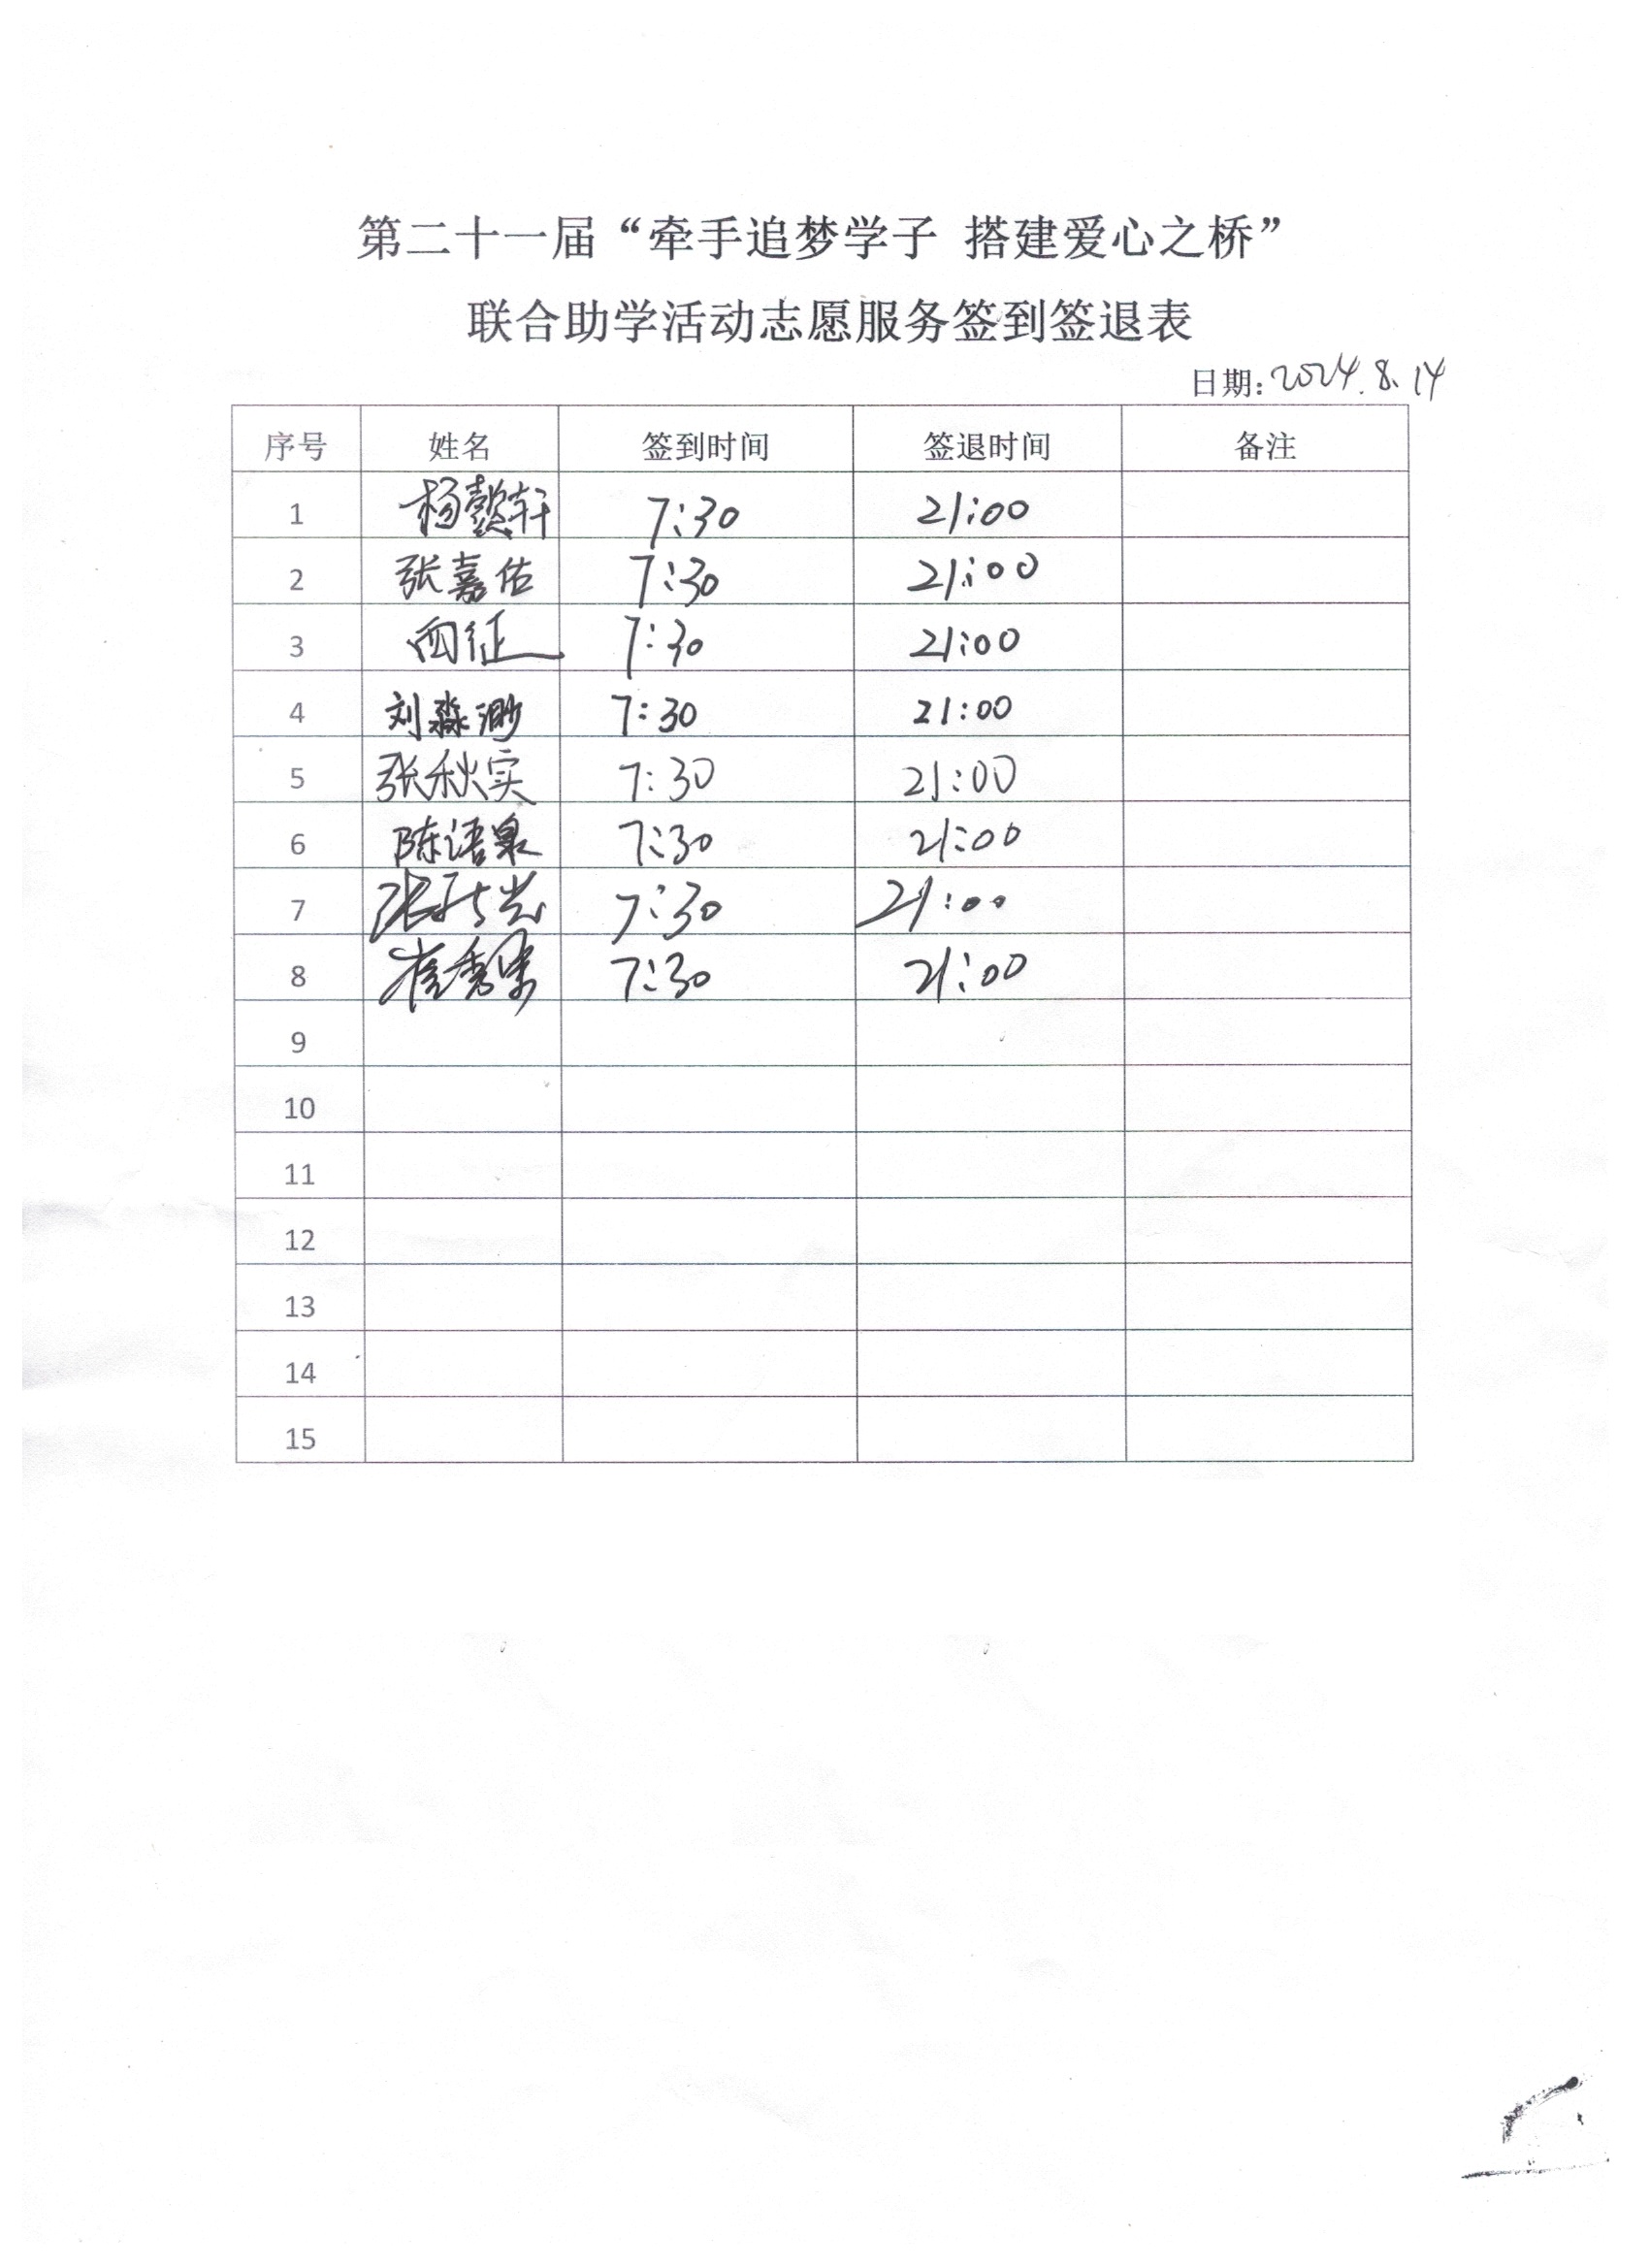 第二十一届“牵手追梦学子 搭建爱心之桥”
联合助学活动志愿服务签到签退表
日期:2024.8.14
序号 姓名 签到时间 签退时间 备注
1 杨懿轩 7:30 21:00
2 张嘉佑 7:30 21:00
3 西征 7:30 21:00
4 刘淼渺 7:30 21:00
5 张秋实 7:30 21:00
6 陈语泉 7:30 21:00
7 7:30 21:00
8 7:30 21:00
9
10
11
12
13
14
15